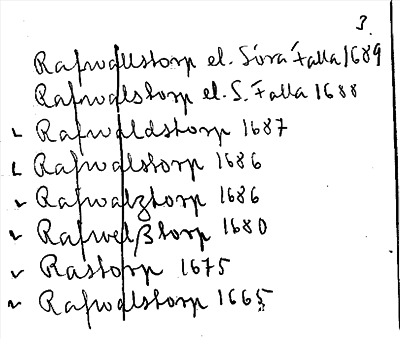 3.
Rafwallstorp el. Sôra Falla 1689
Rafwalstorp el. S. Falla 1688
Rafwaldstorp 1687
Rafwalstorp 1686
Rafwalztorp 1686
Rafwelßtorp 1680
Rastorp 1675
Rafwalstorp 1665